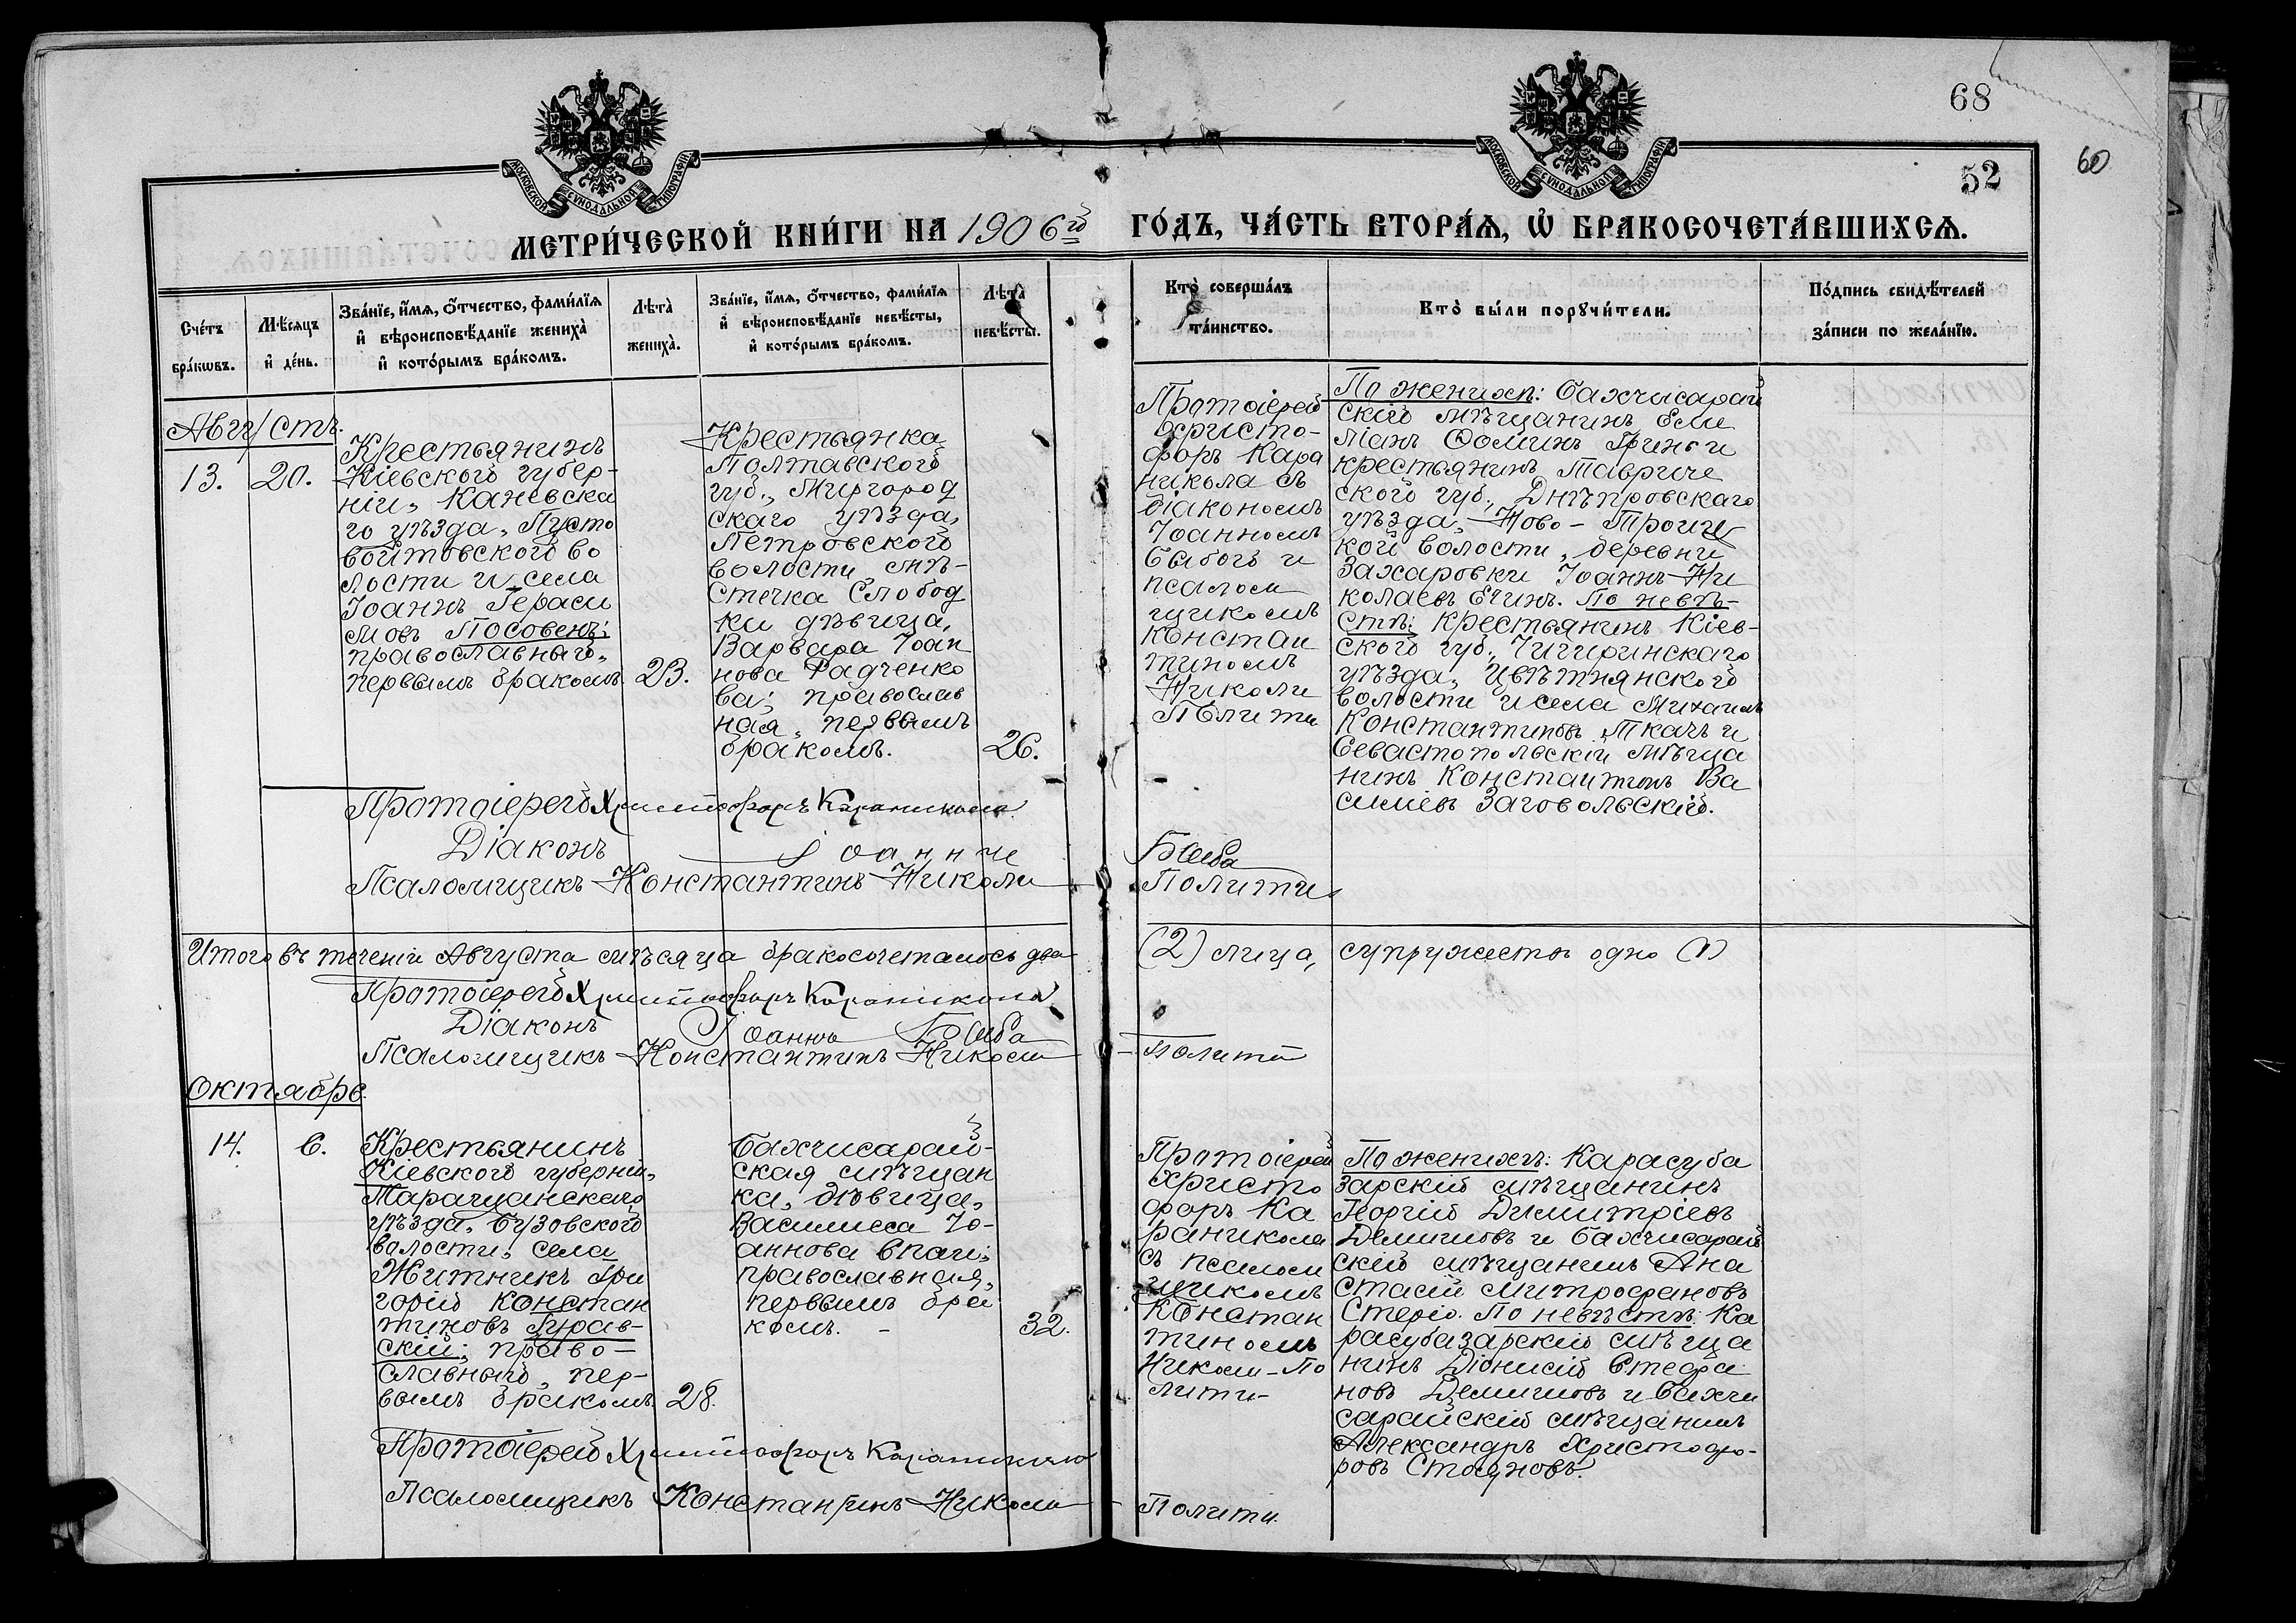 68
52
60
МОСКОВСКОЙ СУНОДАЛЬНОЙ ТИПОГРАФІИ
МОСКОВСКОЙ СУНОДАЛЬНОЙ ТИПОГРАФІИ
МЕТРИ́ЧЕСКОЙ КНИ́ГИ НА 1906го́ ГО́ДЪ, ЧА́СТЬ ВТОРА́Ѧ, Ѡ҆ БРАКОСОЧЕТА́ВШИХСѦ.
Сче́тъ
бра́кѡвъ.
Мѣ́сяцъ
и҆ де́нь.
Зва́нїе, и҆́мѧ, ѻ҆́тчество, фами́лїѧ
и҆ вѣроисповѣ́данїе жениха̀
и҆ кото́рымъ бра́комъ.
Лѣта̀
жениха̀.
Зва́нїе, и҆́мѧ, ѻ҆́тчество, фами́лїѧ
и҆ вѣроисповѣ́данїе невѣ́сты,
и҆ кото́рымъ бра́комъ.
Лѣта̀
невѣ́сты.
Кто̀ соверша́лъ
та́инство.
Кто̀ бы́ли порꙋчи́тели.
По́дпись свидѣ́телей
за́писи по жела́нїю.
Августъ.
13.
20.
Крестьянинъ
Кіевской губер-
ніи, Каневска
го уѣзда, Пусто
войтовской во
лости и села
Іоаннъ Гераси
мовъ Посовенъ;
православный,
первымъ бракомъ
23.
Крестьянка
Полтавской
губ., Миргород
скаго уѣзда,
Петровской
волости, мѣ-
стечка Слобод
ки дѣвица,
Варвара Іоан
нова Радченко
ва; православ
ная, первымъ
бракомъ.
26.
Протоіерей
Христо-
форъ Кара
никола съ
діакономъ
Іоанномъ
Бабой и
псалом
щикомъ
Констан
тиномъ
Николи
Полити
По женихѣ: Бахчисарай
скій мѣщанинъ Еми
ліанъ Ѳоминъ Гринь и
крестьянинъ Тавриче
ской губ., Днѣпровскаго
уѣзда, Ново-Троиц
кой волости, деревни
Захаровки Іоаннъ Ни
колаевъ Ечинъ. По невѣ-
стѣ: крестьянинъ Кіев-
ской губ., Чигиринскаго
уѣзда, Цвѣтнянской
волости и села Михаилъ
Константиновъ Ткачъ и
Севастопольскій мѣща
нинъ Константинъ Ва
силіевъ Заговольскій.
Протоіерей Христофоръ Караникола
Діаконъ Іоаннъ Баба
Псаломщикъ Константинъ Николи Полити
Итого въ теченіи Августа мѣсяца бракосочеталось два (2) лица, супружествъ одно (1)
Протоіерей Христофоръ Караникола
Діаконъ Іоаннъ Баба
Псаломщикъ Константинъ Николи - Полити
Октябрь.
14.
6.
Крестьянинъ
Кіевской губерніи,
Таращанскаго
уѣзда, Бузовской
волости, села
Житникъ Гри
горій Констан
тиновъ
скій; право-
славный, пер-
вымъ бракомъ
28.
Бахчисарай-
ская мѣщан
ка, дѣвица,
Василиса Іо-
аннова
православная,
первымъ бра
комъ. -
32.
Протоіерей
Христо
форъ Ка
раникола
съ псалом
щикомъ
Констан
тиномъ
Николи-По
лити-
По женихѣ: Карасуба
зарскій мѣщанинъ
Георгій Димитріевъ
Демишовъ и Бахчисарай
скій мѣщанинъ Ана
стасій Митрофановъ
Стеріо. По невѣстѣ: Ка
расубазарскій мѣща
нинъ Діонисій Стефа
новъ Демишовъ и Бахчи
сарайскій мѣщанинъ
Александръ Христофо-
ровъ Стояновъ.
Протоіерей Христофоръ Караникола
Псаломщикъ Константинъ Николи - Полити.